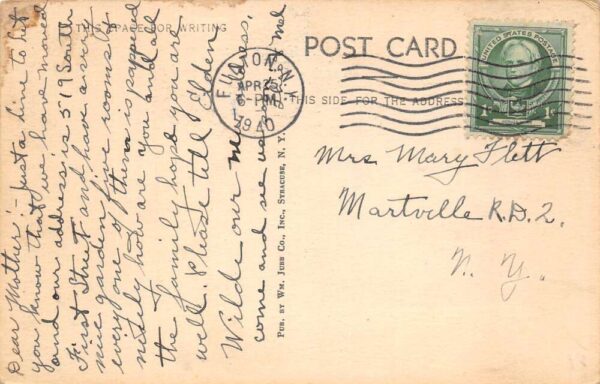 THIS SPACE FOR WRITING
Dear Mother:- just a line to let
you know that we have moved
and our address is 519 South
First Street and have a very
nice garden five rooms &
everyone of them is papered
nicely how are you and all
the family hope you are
well. Please tell Elden
Wilde our address,
come and see us Mel
PUB. BY WM. JUBB CO., INC., SYRACUSE, N. Y.
POST CARD
THIS SIDE FOR THE ADDRESS
FULTON, N.Y.
APR 23
6-PM
1940
UNITED STATES POSTAGE
1¢
Mrs. Mary Flett
Martville R.D. 2.
N. Y.